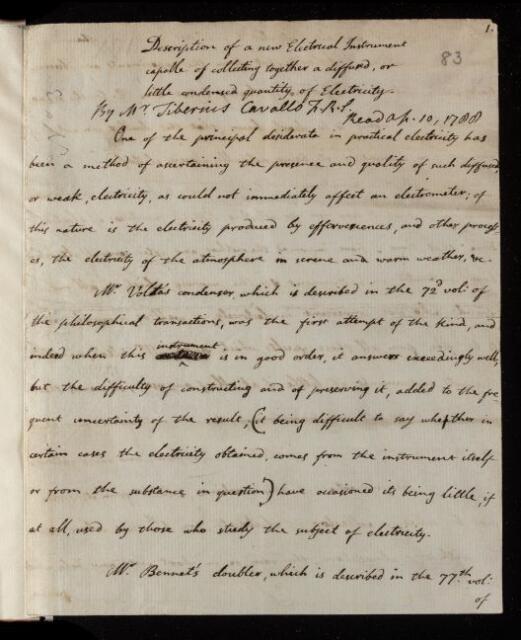 1.
83
Description of a new Electrical Instrument
capable of collecting together a diffused, or
little condensed quantity of Electricity.
By Mr. Tiberius Cavallo F.R.S.
Read Ap. 10, 1788
One of the principal desiderata in practical electricity has
been a method of ascertaining the presence and quality of such diffused,
or weak, electricity, as could not immediately affect an electrometer; of
this nature is the electricity produced by effervescences, and other process-
es, the electricity of the atmosphere in serene and warm weather, &c.
Mr. Volta's condenser, which is described in the 72d vol: of
the philosophical transactions, was the first attempt of the kind, and
indeed when this instrument is in good order, it answers exceedingly well,
but the difficulty of constructing and of preserving it, added to the fre-
quent uncertainty of the result, (it being difficult to say whether in
certain cases the electricity obtained, comes from the instrument itself
or from the substance in question) have occasioned its being little, if
at all, used by those who study the subject of electricity.
Mr. Bennet's doubler, which is described in the 77th vol:
of